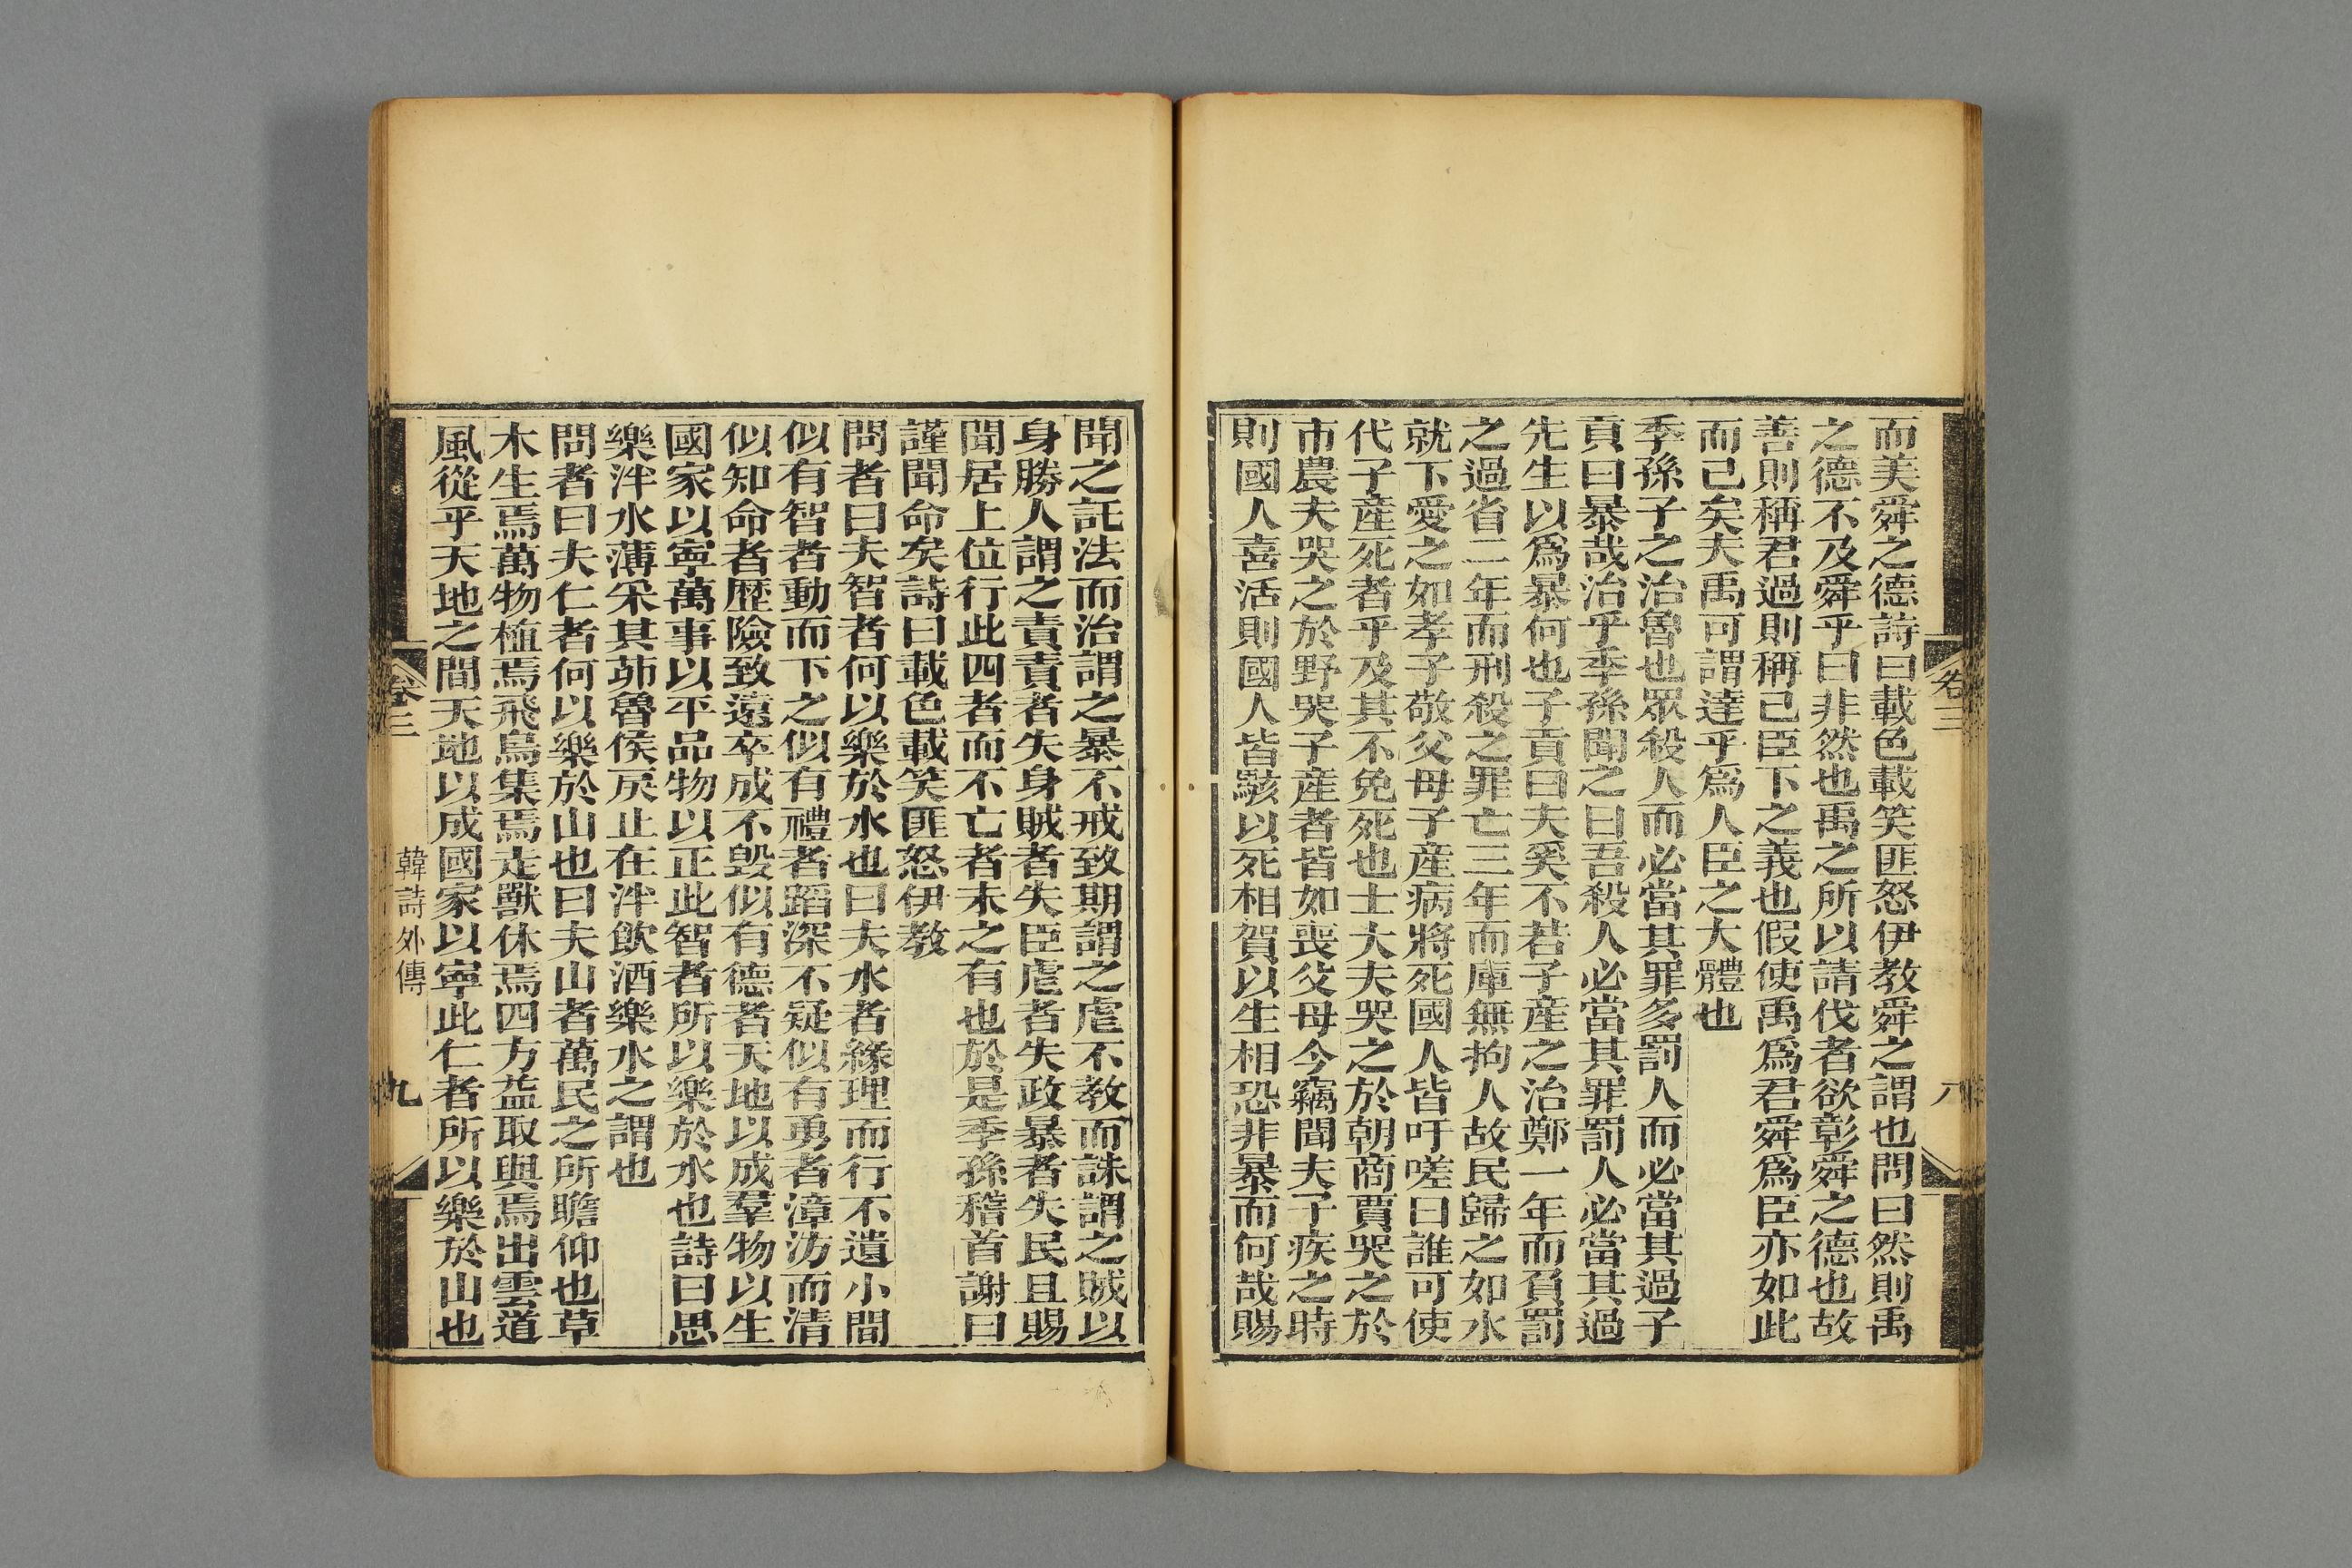 而美舜之德詩曰載色載笑匪怒伊教舜之謂也問曰然則禹
之德不及舜乎曰非然也禹之所以請伐者欲彰舜之德也故
善則稱君過則稱己臣下之義也假使禹爲君舜爲臣亦如此
而已矣夫禹可謂達乎爲人臣之大體也
季孫子之治魯也眾殺人而必當其罪多罰人而必當其過子
貢曰暴哉治乎季孫聞之曰吾殺人必當其罪罰人必當其過
先生以爲暴何也子貢曰夫奚不若子産之治鄭一年而負罰
之過省二年而刑殺之罪亡三年而庫無拘人故民歸之如水
就下愛之如孝子敬父母子産病將死國人皆吁嗟曰誰可使
代子産死者乎及其不免死也士大夫哭之於朝商賈哭之於
市農夫哭之於野哭子産者皆如喪父母今竊聞夫子疾之時
則國人喜活則國人皆駭以死相賀以生相恐非暴而何哉賜
卷三
八
聞之託法而治謂之暴不戒致期謂之虐不教而誅謂之賊以
身勝人謂之責責者失身賊者失臣虐者失政暴者失民且賜
聞居上位行此四者而不亡者未之有也於是季孫稽首謝曰
謹聞命矣詩曰載色載笑匪怒伊教
問者曰夫智者何以樂於水也曰夫水者緣理而行不遺小間
似有智者動而下之似有禮者蹈深不疑似有勇者漳汸而清
似知命者歷險致遠卒成不毀似有德者天地以成羣物以生
國家以寧萬事以平品物以正此智者所以樂於水也詩曰思
樂泮水薄采其茆魯侯戾止在泮飲酒樂水之謂也
問者曰夫仁者何以樂於山也曰夫山者萬民之所瞻仰也草
木生焉萬物植焉飛鳥集焉走獸休焉四方益取與焉出雲道
風從乎天地之間天地以成國家以寧此仁者所以樂於山也
卷三
韓詩外傳
九